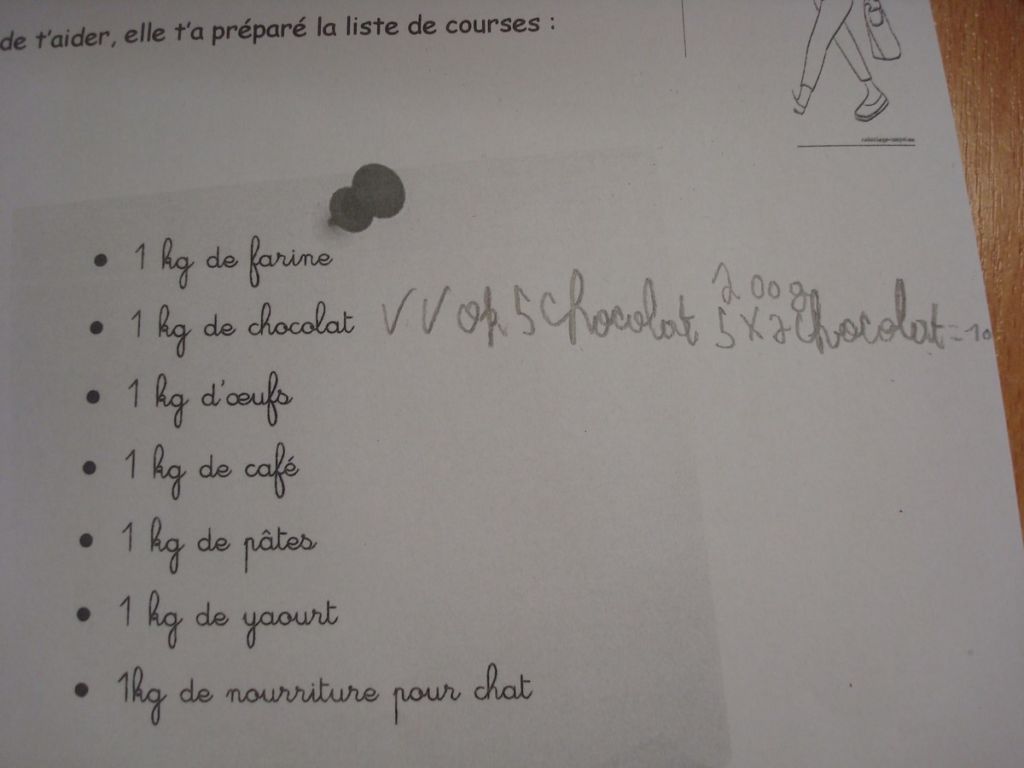 de t'aider, elle t'a préparé la liste de courses :
• 1 kg de farine
• 1 kg de chocolat V V 5 chocolat 200g 5 x 2 chocolat = 10
• 1 kg d'œufs
• 1 kg de café
• 1 kg de pâtes
• 1 kg de yaourt
• 1kg de nourriture pour chat